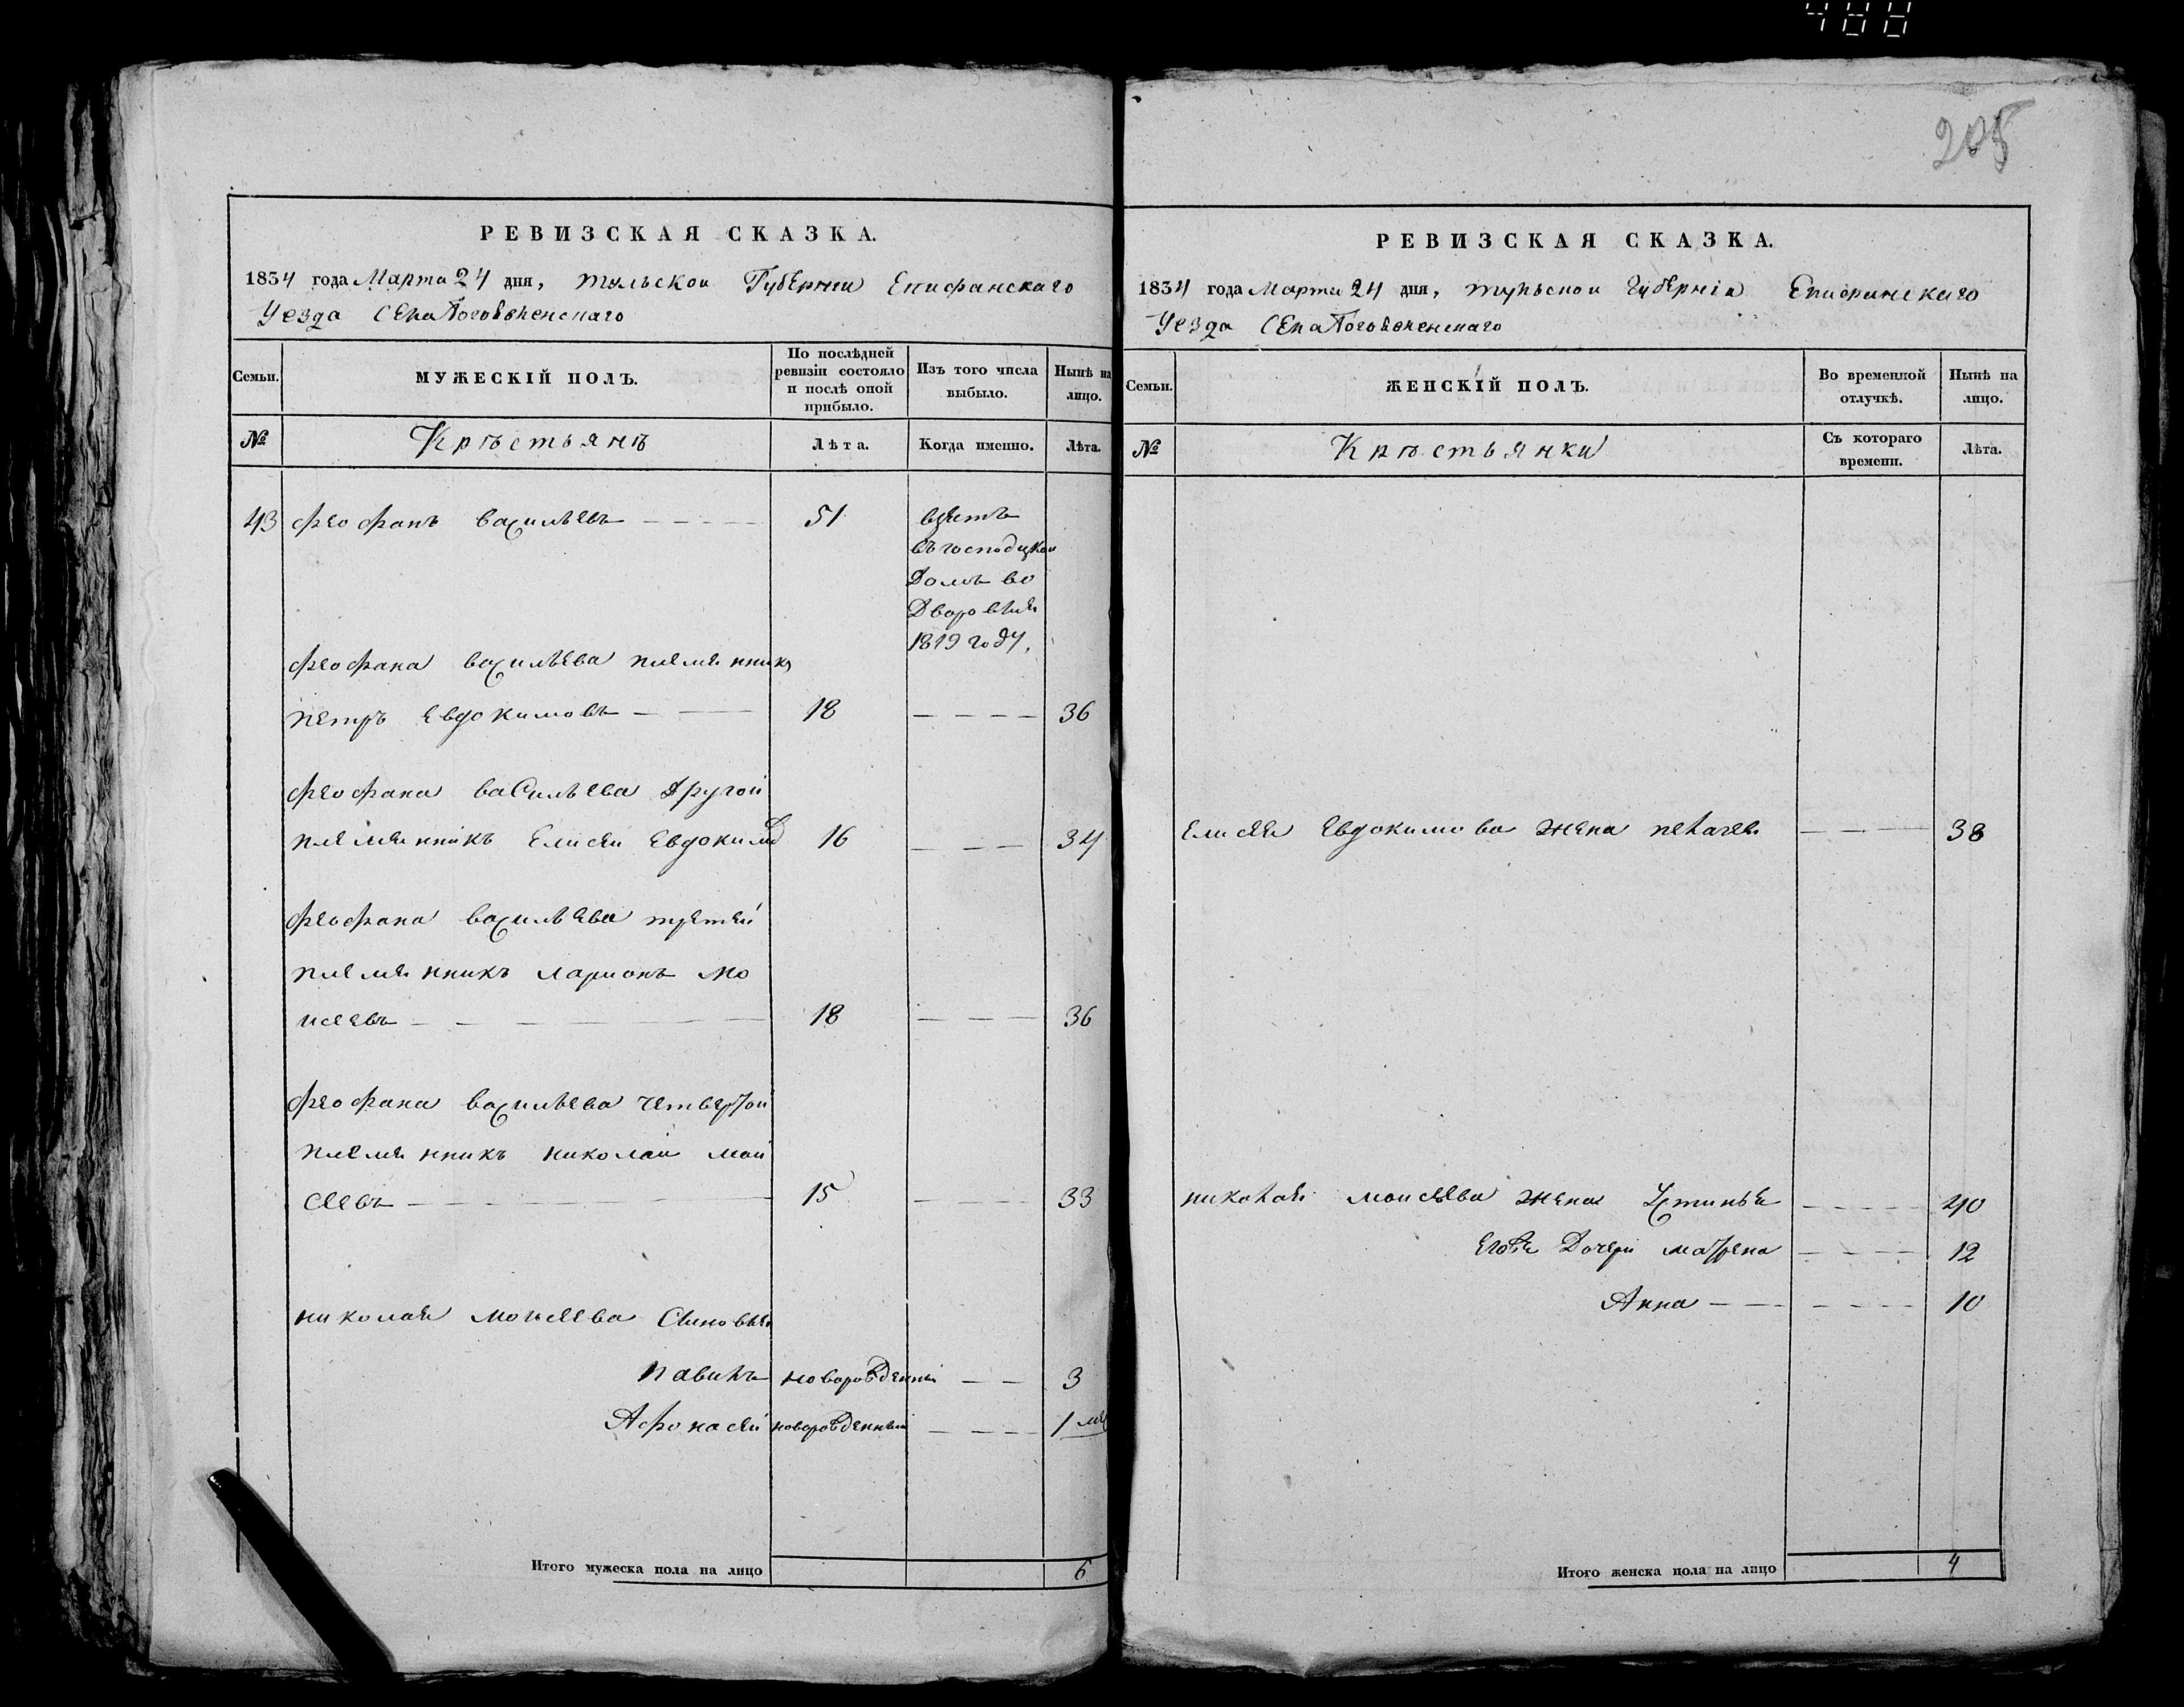 488
205
РЕВИЗСКАЯ СКАЗКА.
1834 года Марта 24 дня, тульской Губернии Епифанского
Уезда Села
Семьи.
МУЖЕСКІЙ ПОЛЪ.
По послѣдней ревизіи состояло и послѣ оной прибыло.
Изъ того числа выбыло.
Нынѣ на лицо.
№
Крѣстьянѣ
Лѣта.
Когда именно.
Лѣта.
43 феофанъ василѣевъ 51 взятъ
въ господской
Домъ во
Дворовыя
1819 году.
феофана василѣева племянники
петръ Евдокимовъ 18 36
феофана василѣева другой
племянникъ Елисей Евдокимо 16 34
феофана василѣева третей
племянникъ ларионъ мо
исеевъ 18 36
феофана василѣева четвертой
племянникъ николай мои
сеевъ 15 33
николая моисеева Сыновья
павилъ новорожденный 3
Афонасей новорожденный 1 ме
Итого мужеска пола на лицо 6
РЕВИЗСКАЯ СКАЗКА.
1834 года Марта 24 дня, тульской Губерніи Епифанскаго
Уезда Села
Семьи.
ЖЕНСКІЙ ПОЛЪ.
Во временной отлучкѣ.
Нынѣ на лицо.
№
Крѣстьянки
Съ котораго времени.
Лѣта.
Елисея Евдокимова жена пелагея 38
николая моисѣева жена Устинья 40
Его Дочери матрена 12
Анна 10
Итого женска пола на лицо 4